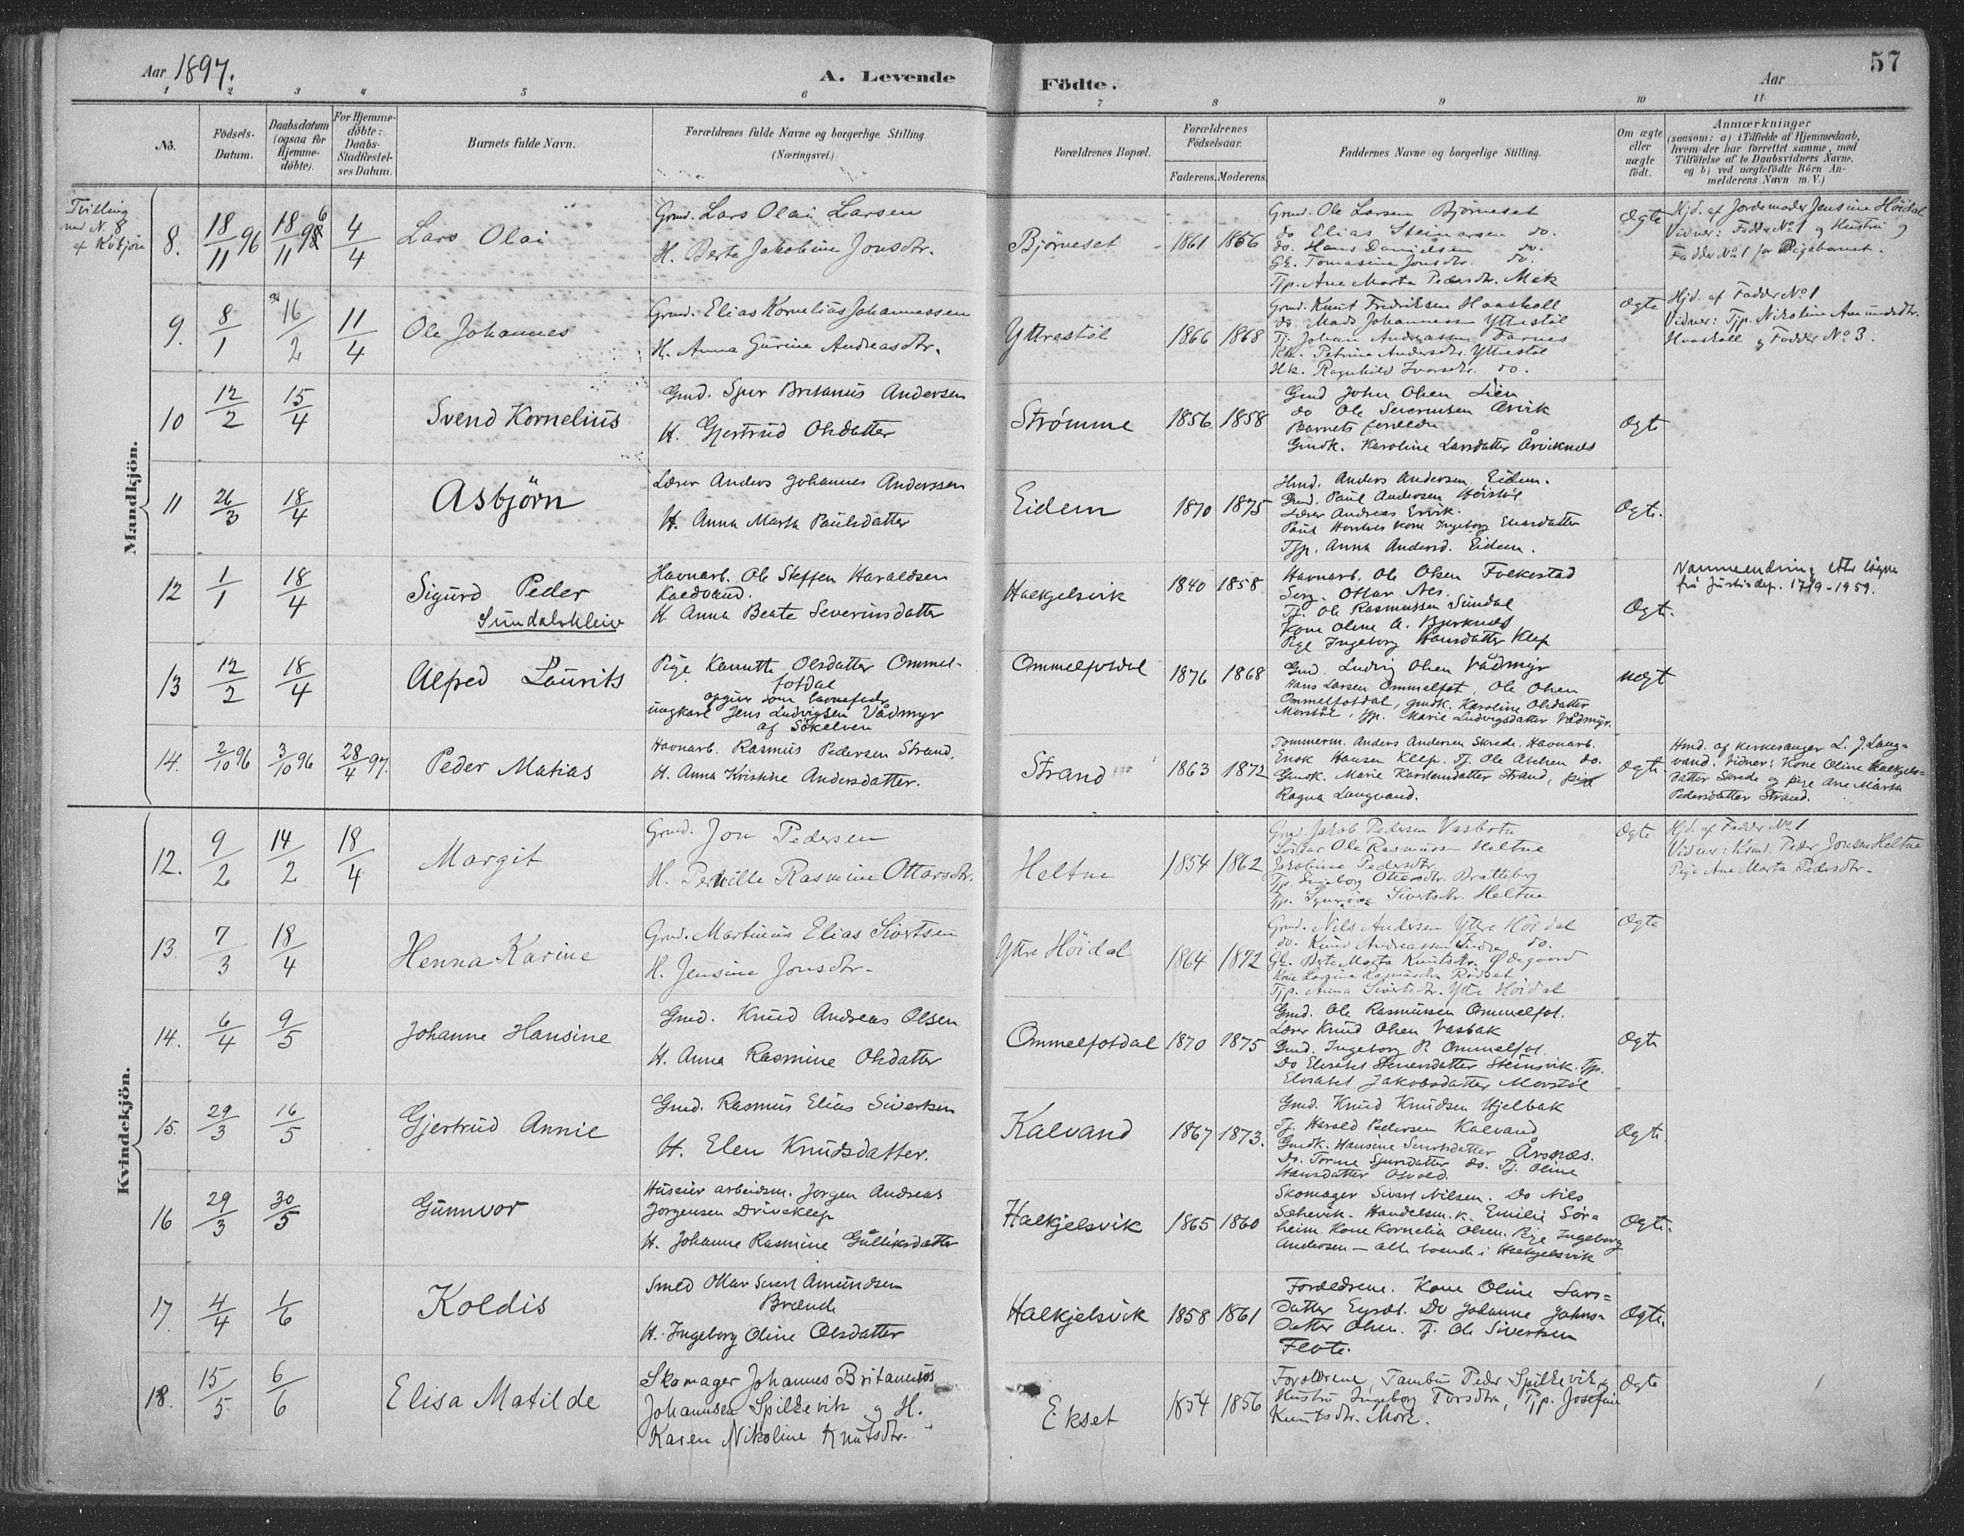 Aar 1897.
A. Levende
Födte.
Aar
57
1 2 3 4 5 6 7 8 9 10 11
No.
Födsels-Datum.
Daabsdatum (ogsaa for Hjemmedöbte).
For Hjemmedöbte: Daabs-Stadfæstelses Datum.
Barnets fulde Navn.
Forældrenes fulde Navne og borgerlige Stilling. (Næringsvei.)
Forældrenes Bopæl.
Forældrenes Födselsaar.
Faderens. Moderens.
Faddernes Navne og borgerlige Stilling.
Om ægte eller uægte födt.
Anmærkninger
(saasom: a) i Tilfælde af Hjemmedaab, hvem der har forrettet samme, med Tilföielse af to Daabsvidners Navne, og b) ved uægtefödte Börn Anmelderens Navn m. V.)
Mandkjön.
Tvilling
med N. 8
af Kvkjön
8. 18/11 96 18/11 96 4/4 Lars Olai
Grmd. Lars Olai Larsen
H. Berte Jakobine Jonsdtr.
Björneset 1861 1856
Grmd. Ole Larsen Björneset
do Elias Steinarsen do.
do. Hans Danielsen do.
Gk. Tomasine Jonsdtr. do.
Tjp. Ane Marta Pedersdtr. Mek
Ægte
Hjd. af Jordemoder Jensine Höidal
Vidner: Fadder No 1 og Hustru og
Fadder No 1 for Pigebarnet.
9. 8/1 16/2 11/4 Ole Johannes
Grmd. Elias Kornelius Johannessen
H. Anna Gurine Andreasdtr.
Yttrestöl 1866 1868
Grmd. Knut Fredriksen Haaskoll
do. Mads Johannessen Yttrestöl
Tj. Johan Andreassen Farnes
Kk. Petrine Andersdtr. Yttrestöl
Hk. Ragnhild Ivarsdtr. do.
Ægte
Hjd. af Fadder No 1
Vidner: Tjp. Nikoline Amundsdtr.
Haaskoll og Fadder No 3.
10 12/2 15/4 Svend Kornelius
Gmd. Sjur Britanus Andersen
H. Gjertrud Olsdatter
Strømme 1856 1858
Gmd John Olsen Lien
do Ole Severinsen Arvik
Barnets forældre
Gmdk. Karoline Larsdatter Årviknes
Ægt
11 26/3 18/4 Asbjörn
Lærer Anders Johannes Anderssen
H. Anna Marta Paulsdatter
Eidem 1870 1875
Hmd. Anders Andersen Eidem.
Gmd. Paul Andersen Höistöl
Lærer Andreas Ervik.
Paul kone Ingeborg
Tjp. Anna Andersd. Eidem.
Ægt.
12 1/1 18/4 Sigurd Peder
Sundalskleiv
Havnarb. Ole Steffen Haraldsen
Kaldvand.
H. Anna Beate Severinsdatter
Halkjelsvik 1840 1858
Havnarb. Ole Olsen Folkestad
Serg. Ottar Nes.
Tj. Ole Rasmussen Sundal
Kone Oline A. Bjerknes
Pige Ingeborg Hansdatter Klep
Ægt.
Navneendring etter løyve
frå Justisdep. 17/9-1959.
13 12/2 18/4 Alfred Laurits
Pige Kanutte Olsdatter Ommel-
fotdal
opgiver som barnefader
ungkarl Jens Ludvigsen Vådmyr
af Sökelven
Ommelfotdal 1876 1868
Gmd. Ludvig Olsen Vådmyr
Hans Larsen Ommelfot, Ole Olsen
Ommelfotdal, gmdk. Karoline Olsdatter
Morstöl, Tjp. Marie Ludvigsdatter Vådmyr.
uægt
14. 2/10 96 3/10 96 28/4 97. Peder Matias
Havnarb. Rasmus Pedersen Strand.
H. Anna Kristine Andersdatter.
Strand 1863 1872
Tommerm. Anders Andersen Skrede. Havnarb.
Enok Hansen Klep. Tj. Ole Axelsen do.
Gmdk. Marie Karstensdatter Strand, pige
Ragna Langvand.
Ægt.
Hmd. af kirkesanger L. J. Lang-
vand. Vidner: Kone Oline Halkjels-
datter Skrede og pige Ane Marta
Pedersdatter Strand.
Kvindekjön.
12. 9/2 14/2 18/4 Margit
Grmd. Jon Pedersen
H. Pernille Rasmine Ottarsdtr.
Heltne 1854 1862
Grmd. Jakob Pedersen Vasbotn
Ole Rasmussen Heltne
Jakobine Pedersdtr.
Tjp. Ingeborg Ottarsdtr. Bratteberg
Tjp. Sivertsdtr. Heltne
Ægte
Hjd. af Fadder No 1.
Vidner: Kmd. Peder Jonsen Heltne
Pige Ane Marta Pedersdtr.
13. 7/3 18/4 Henna Karine
Grmd. Martinus Elias Sivertsen
H. Jensine Jonsdtr.
Ytre Höidal 1864 1872
Grmd. Nils Andersen Ytre Höidal
do. Knud Andreassen Indre do.
Gk. Berte Marta Knutsdtr. Ödegaard
Kone Lovise Rasmusdtr. Rödset
Tjp. Anna Sivertsdtr. Ytre Höidal
Ægte
14. 6/4 9/5 Johanne Hansine
Gmd. Knud Andreas Olsen
H. Anna Rasmine Olsdatter
Ommelfotdal 1870 1875
Gmd. Ole Rasmussen Ommelfot.
Lærer Knud Olsen Vasbak
Gmd. Ingeborg R. Ommelfot
Do Elisabet Steinsvik. Tjp.
Elisabet Jakobsdatter Morstöl
Ægt
15. 29/3 16/5 Gjertrud Annie
Gmd. Rasmus Elias Sivertsen
H. Elen Knudsdatter.
Kalvand 1867 1873.
Gmd. Knud Knudsen Hjelbak
Tj. Harald Pedersen Kalvand
Gmdk. Hansine Sivertsdatter Årsnes.
Do. Torine Sjursdatter do. Tj. Oline
Hansdatter Osvold.
Ægt.
16 29/3 30/5 Gunnvor
Huseier arbeidsm. Jørgen Andreas
Jorgensen Driveklep
H. Johanne Rasmine Gulliksdatter
Halkjelsvik 1865 1860
Skomager Sivert Nilsen. Do Nils
Sætrevik. Handelsm.k. Emilie Sör-
heim. Kone Kornelia Olsen. Pige Ingeborg
Andersen - alle boende i Halkjelsvik
Ægt.
17. 4/4 1/6 Koldis
Smed Ottar Sivert Amundsen
Brænde
H. Ingeborg Oline Olsdatter
Halkjelsvik 1858 1861
Forældrene. Kone Oline Lars-
datter Eyset. Do Johanne Johns-
datter Olsen. Tj. Ole Sivertsen
Flote.
Ægte.
18. 15/5 6/6 Elisa Matilde
Skomager Johannes Britanius
Johannesen Spilkevik og H.
Karen Nikoline Knutsdtr.
Ekset 1854 1856
Forældrene, Tambur Peder Spilkevik,
Hustru Ingeborg Torsdtr, Tjp. Josefine
Knutsdtr. More.
Ægte